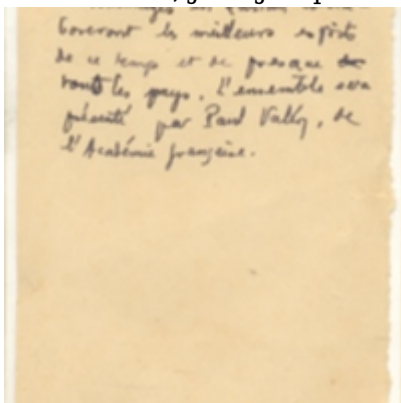 boreront les meilleurs esprits
de ce temps et de presque
tous les pays. L'ensemble sera
présenté par Paul Valéry, de
l'Académie française.